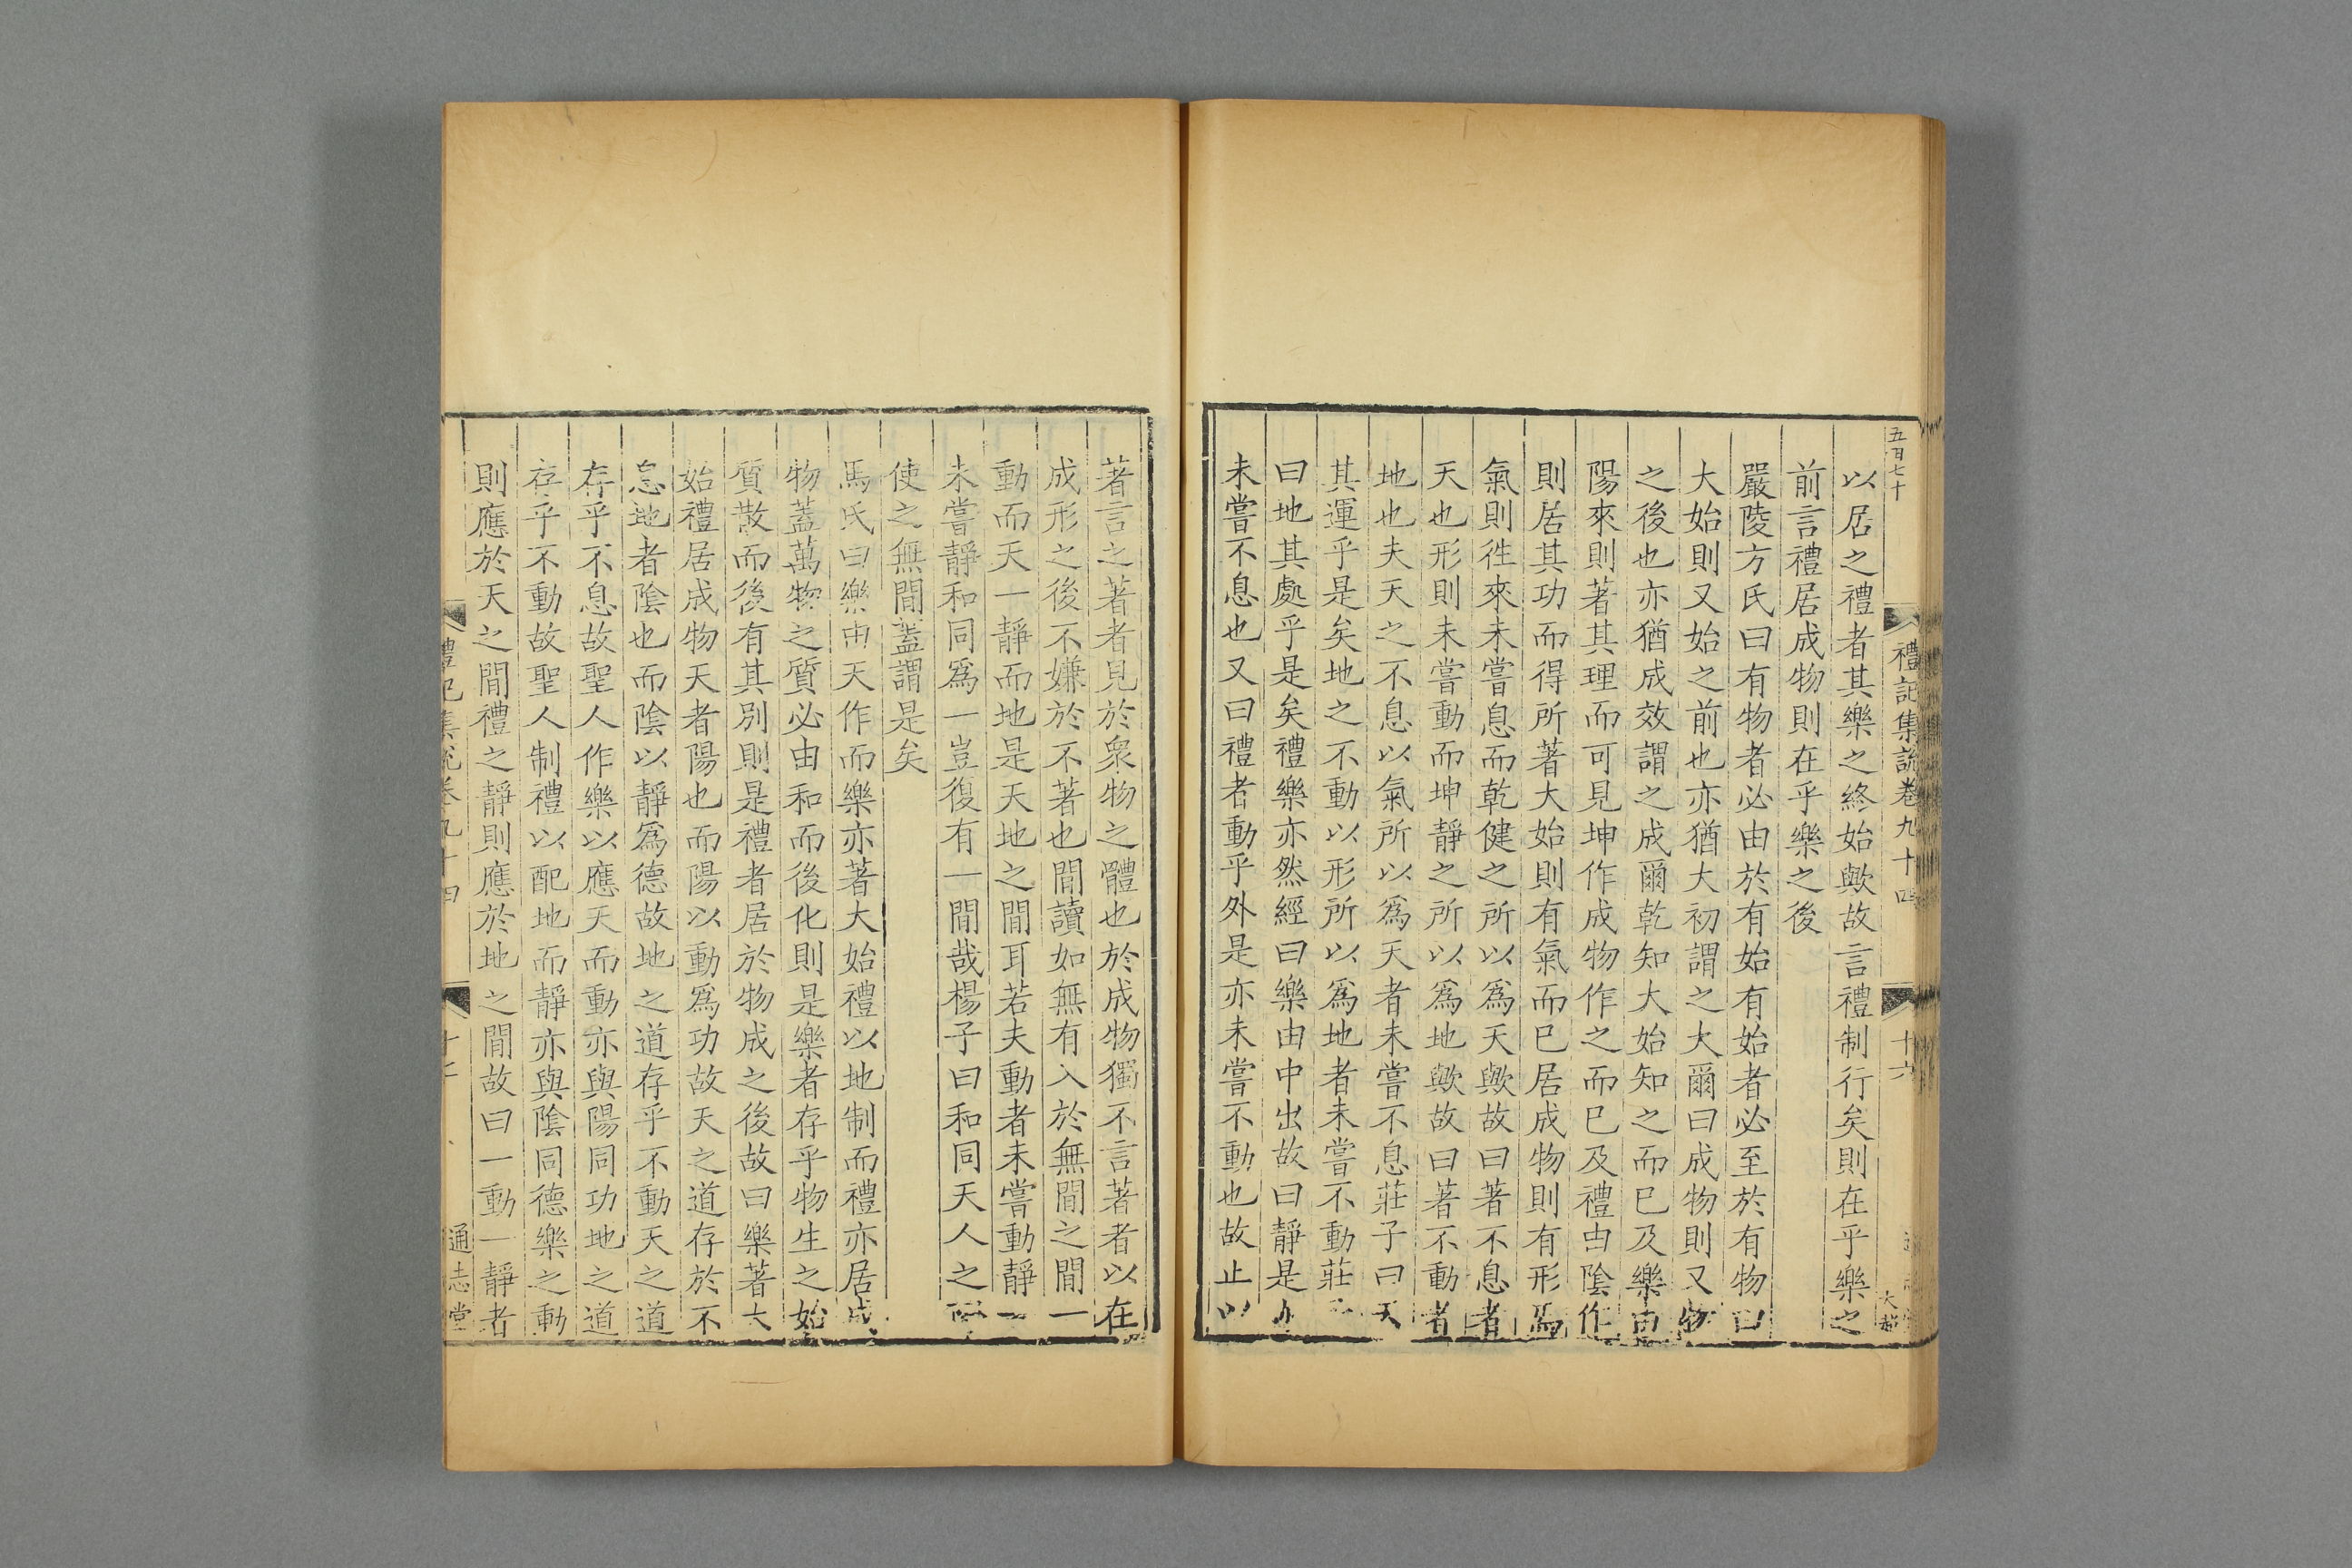 五百七十
禮記集說卷九十四
十六
以居之禮者其樂之終始歟故言禮制行矣則在乎樂之
前言禮居成物則在乎樂之後
嚴陵方氏曰有物者必由於有始有始者必至於有物曰
大始則又始之前也亦猶大初謂之大爾曰成物則又物
之後也亦猶成效謂之成爾乾知大始知之而已及樂由
陽來則著其理而可見坤作成物作之而已及禮由陰作
則居其功而得所著大始則有氣而已居成物則有形焉
氣則徃來未嘗息而乾健之所以爲天歟故曰著不息者
天也形則未嘗動而坤靜之所以爲地歟故曰著不動者
地也夫天之不息以氣所以爲天者未嘗不息莊子曰天
其運乎是矣地之不動以形所以爲地者未嘗不動莊
曰地其處乎是矣禮樂亦然經曰樂由中出故曰靜是
未嘗不息也又曰禮者動乎外是亦未嘗不動也故止以
著言之著者見於衆物之體也於成物獨不言著者以在
成形之後不嫌於不著也閒讀如無有入於無閒之閒一
動而天一靜而地是天地之閒耳若夫動者未嘗動靜一
未嘗靜和同爲一豈復有一閒哉楊子曰和同天人之
使之無閒蓋謂是矣
馬氏曰樂由天作而樂亦著大始禮以地制而禮亦居成
物蓋萬物之質必由和而後化則是樂者存乎物生之始
質散而後有其別則是禮者居於物成之後故曰樂著大
始禮居成物天者陽也而陽以動爲功故天之道存於不
息地者陰也而陰以靜爲德故地之道存乎不動天之道
存乎不息故聖人作樂以應天而動亦與陽同功地之道
存乎不動故聖人制禮以配地而靜亦與陰同德樂之動
則應於天之閒禮之靜則應於地之閒故曰一動一靜者
禮記集說卷九十四
通志堂